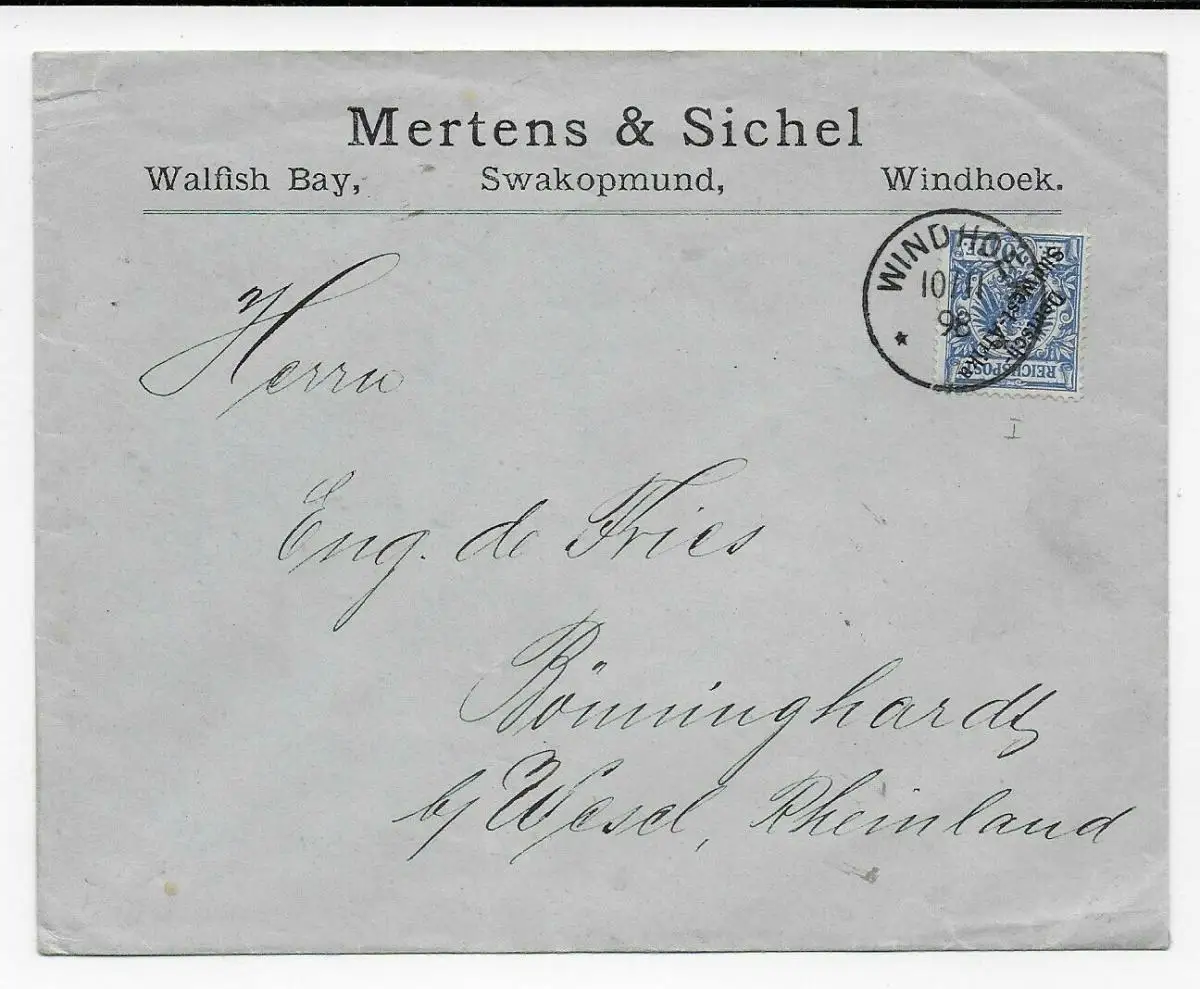 Mertens & Sichel
Walfish Bay, Swakopmund, Windhoek.
WINDHOEK
10/11
98
*
Deutsch-
Südwest-Afrika
REICHSPOST
I
Herrn
Eug. de Fries
Bönninghardt
b/ Wesel, Rheinland